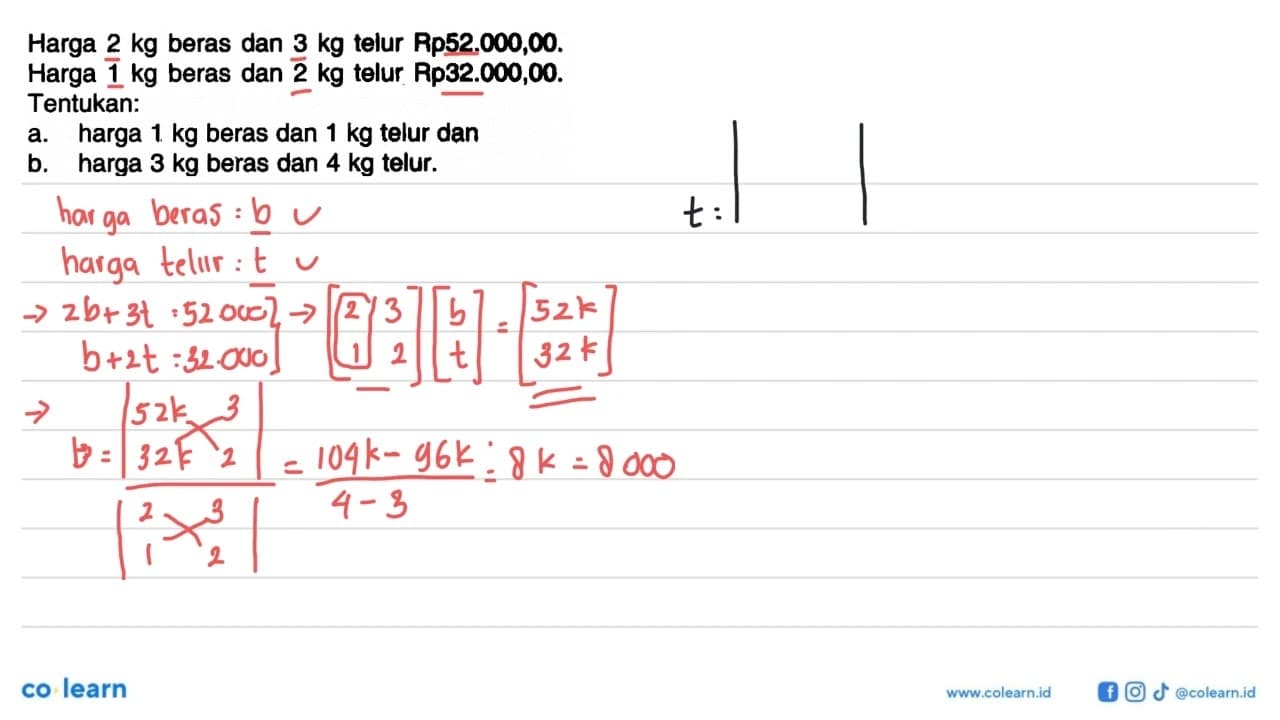 Harga 2 kg beras dan 3 kg telur Rp52.000,00.
Harga 1 kg beras dan 2 kg telur Rp32.000,00.
Tentukan:
a. harga 1 kg beras dan 1 kg telur dan
b. harga 3 kg beras dan 4 kg telur.
harga beras : b ✓
t =
harga telur : t ✓
→ 2b + 3t = 52000] → [2 3] [b] = [52k]
b + 2t = 32.000] [1 2] [t] [32k]
→ |52k 3|
b = |32k 2| = 104k - 96k = 8k = 8000
|2 3| 4 - 3
|1 2|
co learn
www.colearn.id
@colearn.id